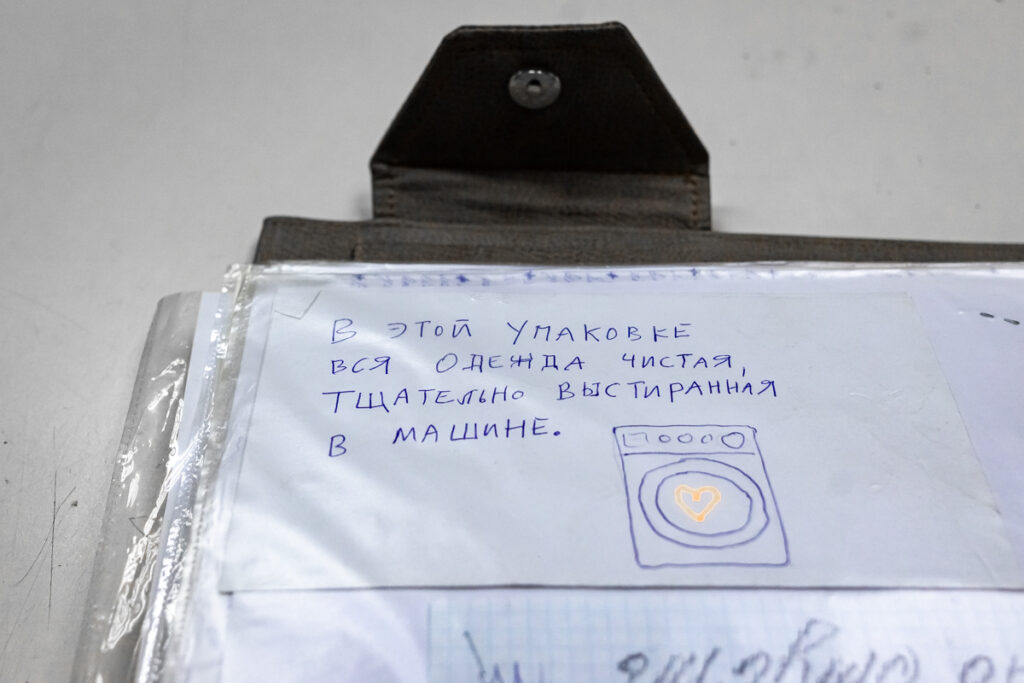 В ЭТОЙ УПАКОВКЕ
ВСЯ ОДЕЖДА ЧИСТАЯ,
ТЩАТЕЛЬНО ВЫСТИРАННАЯ
В МАШИНЕ.